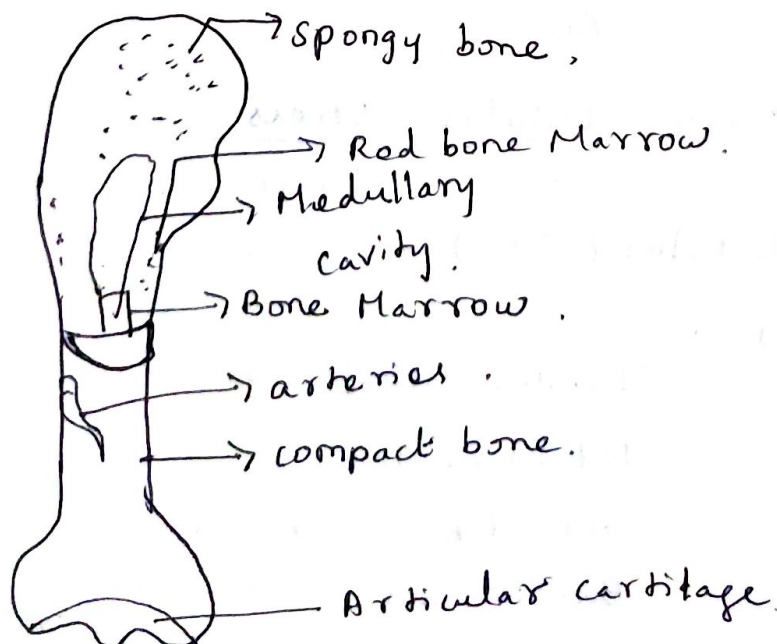 Spongy bone,
Red bone Marrow.
Medullary
cavity.
Bone Marrow.
arteries.
compact bone.
Articular cartilage.